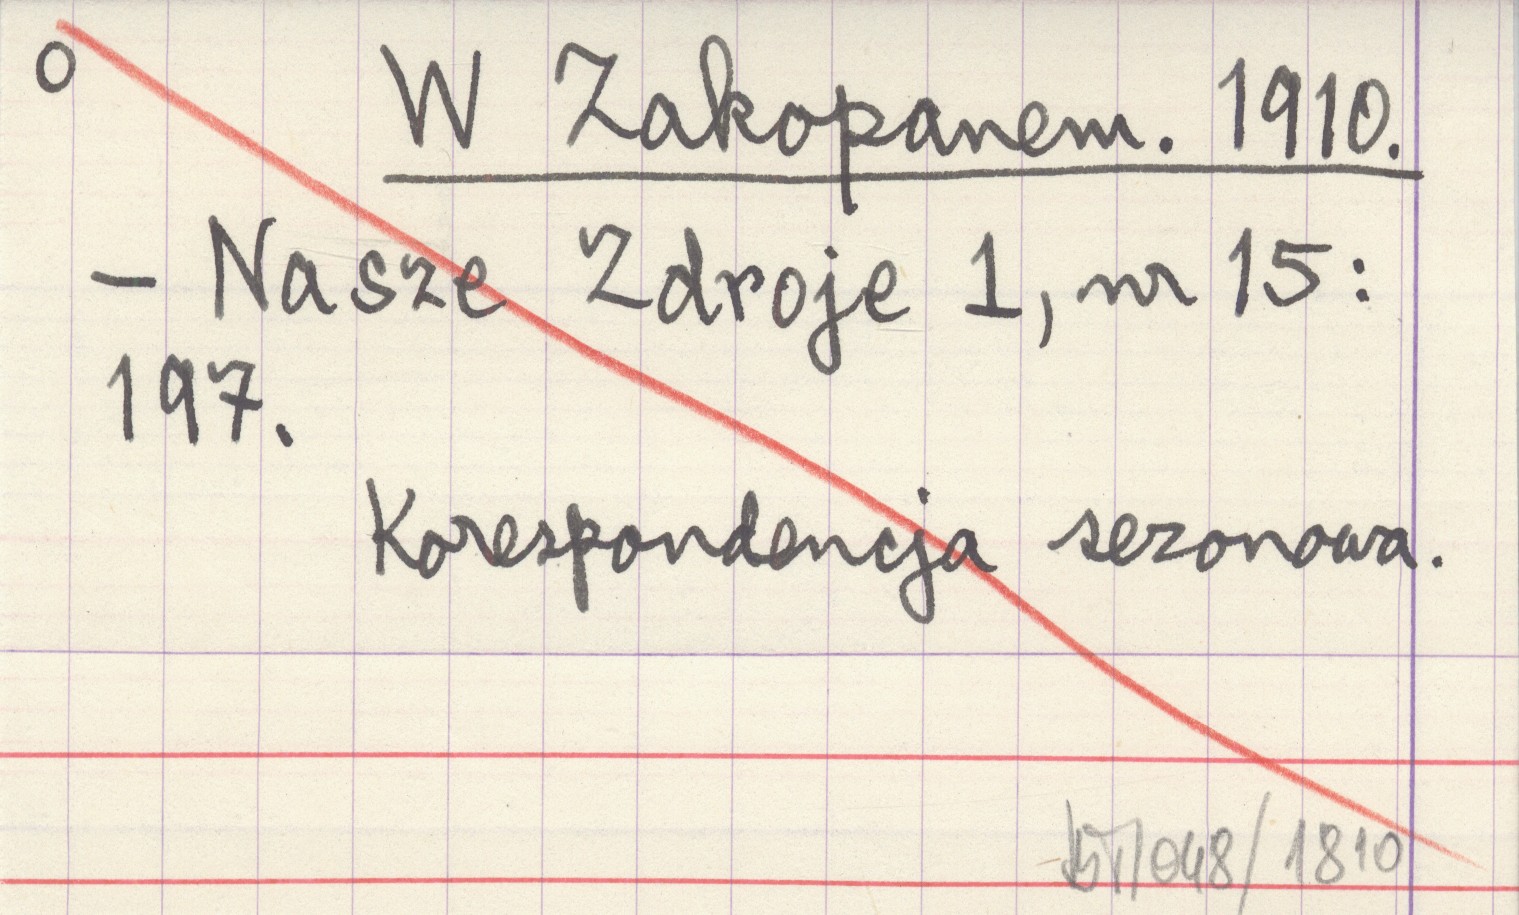 o W Zakopanem. 1910.
- Nasze Zdroje 1, nr 15:
197.
Korespondencja sezonowa.
/048/1810